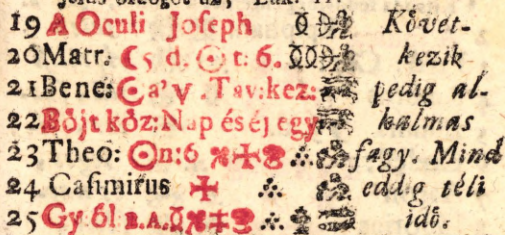 19 A Oculi Joseph Követ-
20 Matr. ☾5 d. ☉ t: 6. kezik
21 Bene: ☉ a' ♈. Tav: kez: pedig al-
22 Böjt köz: Nap és éj egy kalmas
23 Theo: ☉ n: 6 fagy. Mind
24 Casimirus eddig téli
25 B. A. idö.